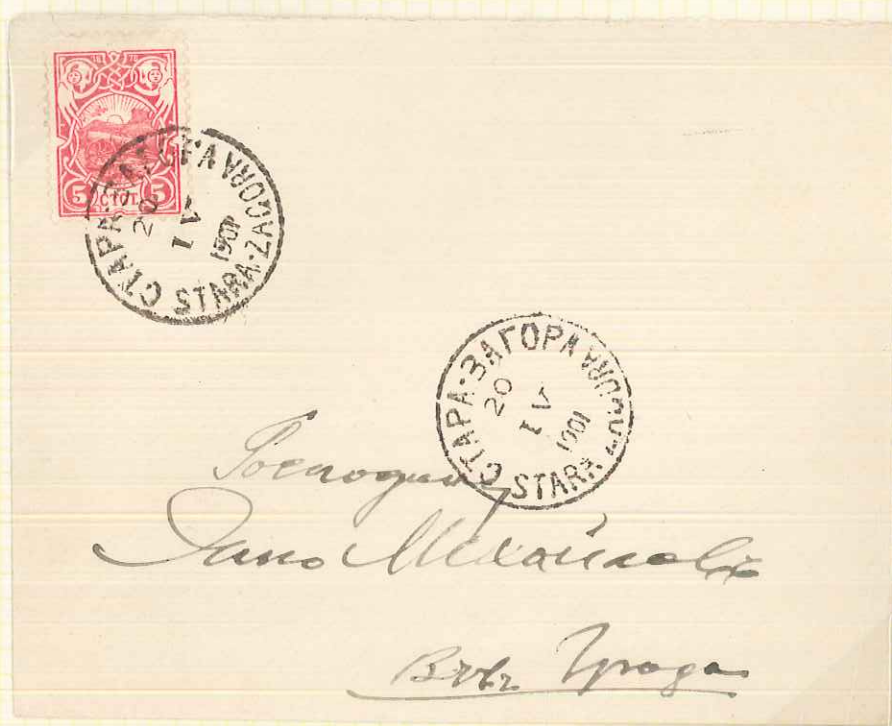 5 СТОТ. 5
СТАРА·ЗАГОРА
20
IV
1901
STARA·ZAGORA
СТАРА·ЗАГОРА
20
IV
1901
STARA ZAGORA
Господину
Михайловъ
Въвъ града